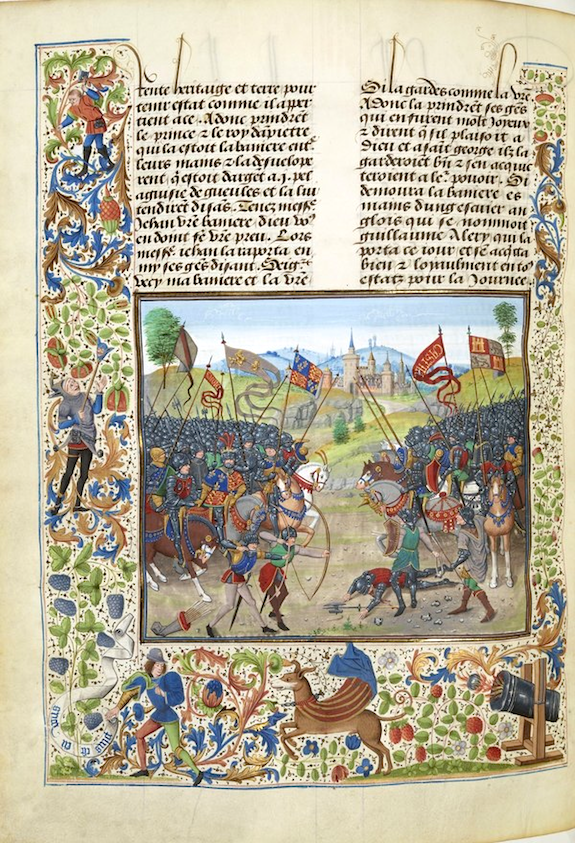 tente heritaige et terre pour
tenir estat comme il apper
tient a ce. Adonc prindrēt
le prince ⁊ le roy dāpietre
qui la estoit la baniere ent̄
leurs mains ⁊ la desuelope
rent q̄ estoit dargēt a .j. pel
aguisie de gueules et la luy
tendirēt disās. Tenez mess̄e
Jehan vr̄e baniere dieu vo᷒
en doint fē vr̄e preu. Lors
mess̄e iehan la raporta en
my ses gēs disant. Seigr̄s
vecy ma baniere et la vr̄e
Si la gardes comme la vr̄e
Adonc la prindrēt ses gēs
qui en furent molt joyeux
⁊ dirent q̄ sil plaisoit a
dieu et a saīt george ilz la
garderoiēt bn̄ ⁊ sen acquic
teroient a leʳ pouoir. Si
demoura la baniere es
mains dung escuier an
glois qui se nommoit
guillaume Alery qui la
porta ce iour et se acq̄ta
bien ⁊ loyaulment en to᷒
estatz pour la Journee.